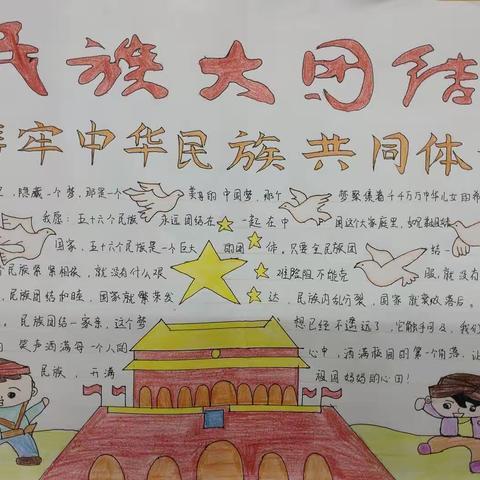 民族大团结
铸牢中华民族共同体
里，隐藏一个梦，那是一个美丽的中国梦，那个梦聚集着千千万万中华儿女的希
我愿：五十六个民族永远团结在一起在中国这个大家庭里，如兄
国家，五十六个民族是一个巨大的团体。只要全民族团结一
民族紧紧相依，就没有什么艰难险阻不能克服，就没有
民族团结和睦，国家就繁荣发达，民族内乱分裂，国家就衰败落后。
民族团结一家亲，这个梦想已经不遥远了，它触手可及，我们
笑声洒满每一个人的心中，洒满校园的第一个角落，让
民族，开满祖国妈妈的心田！